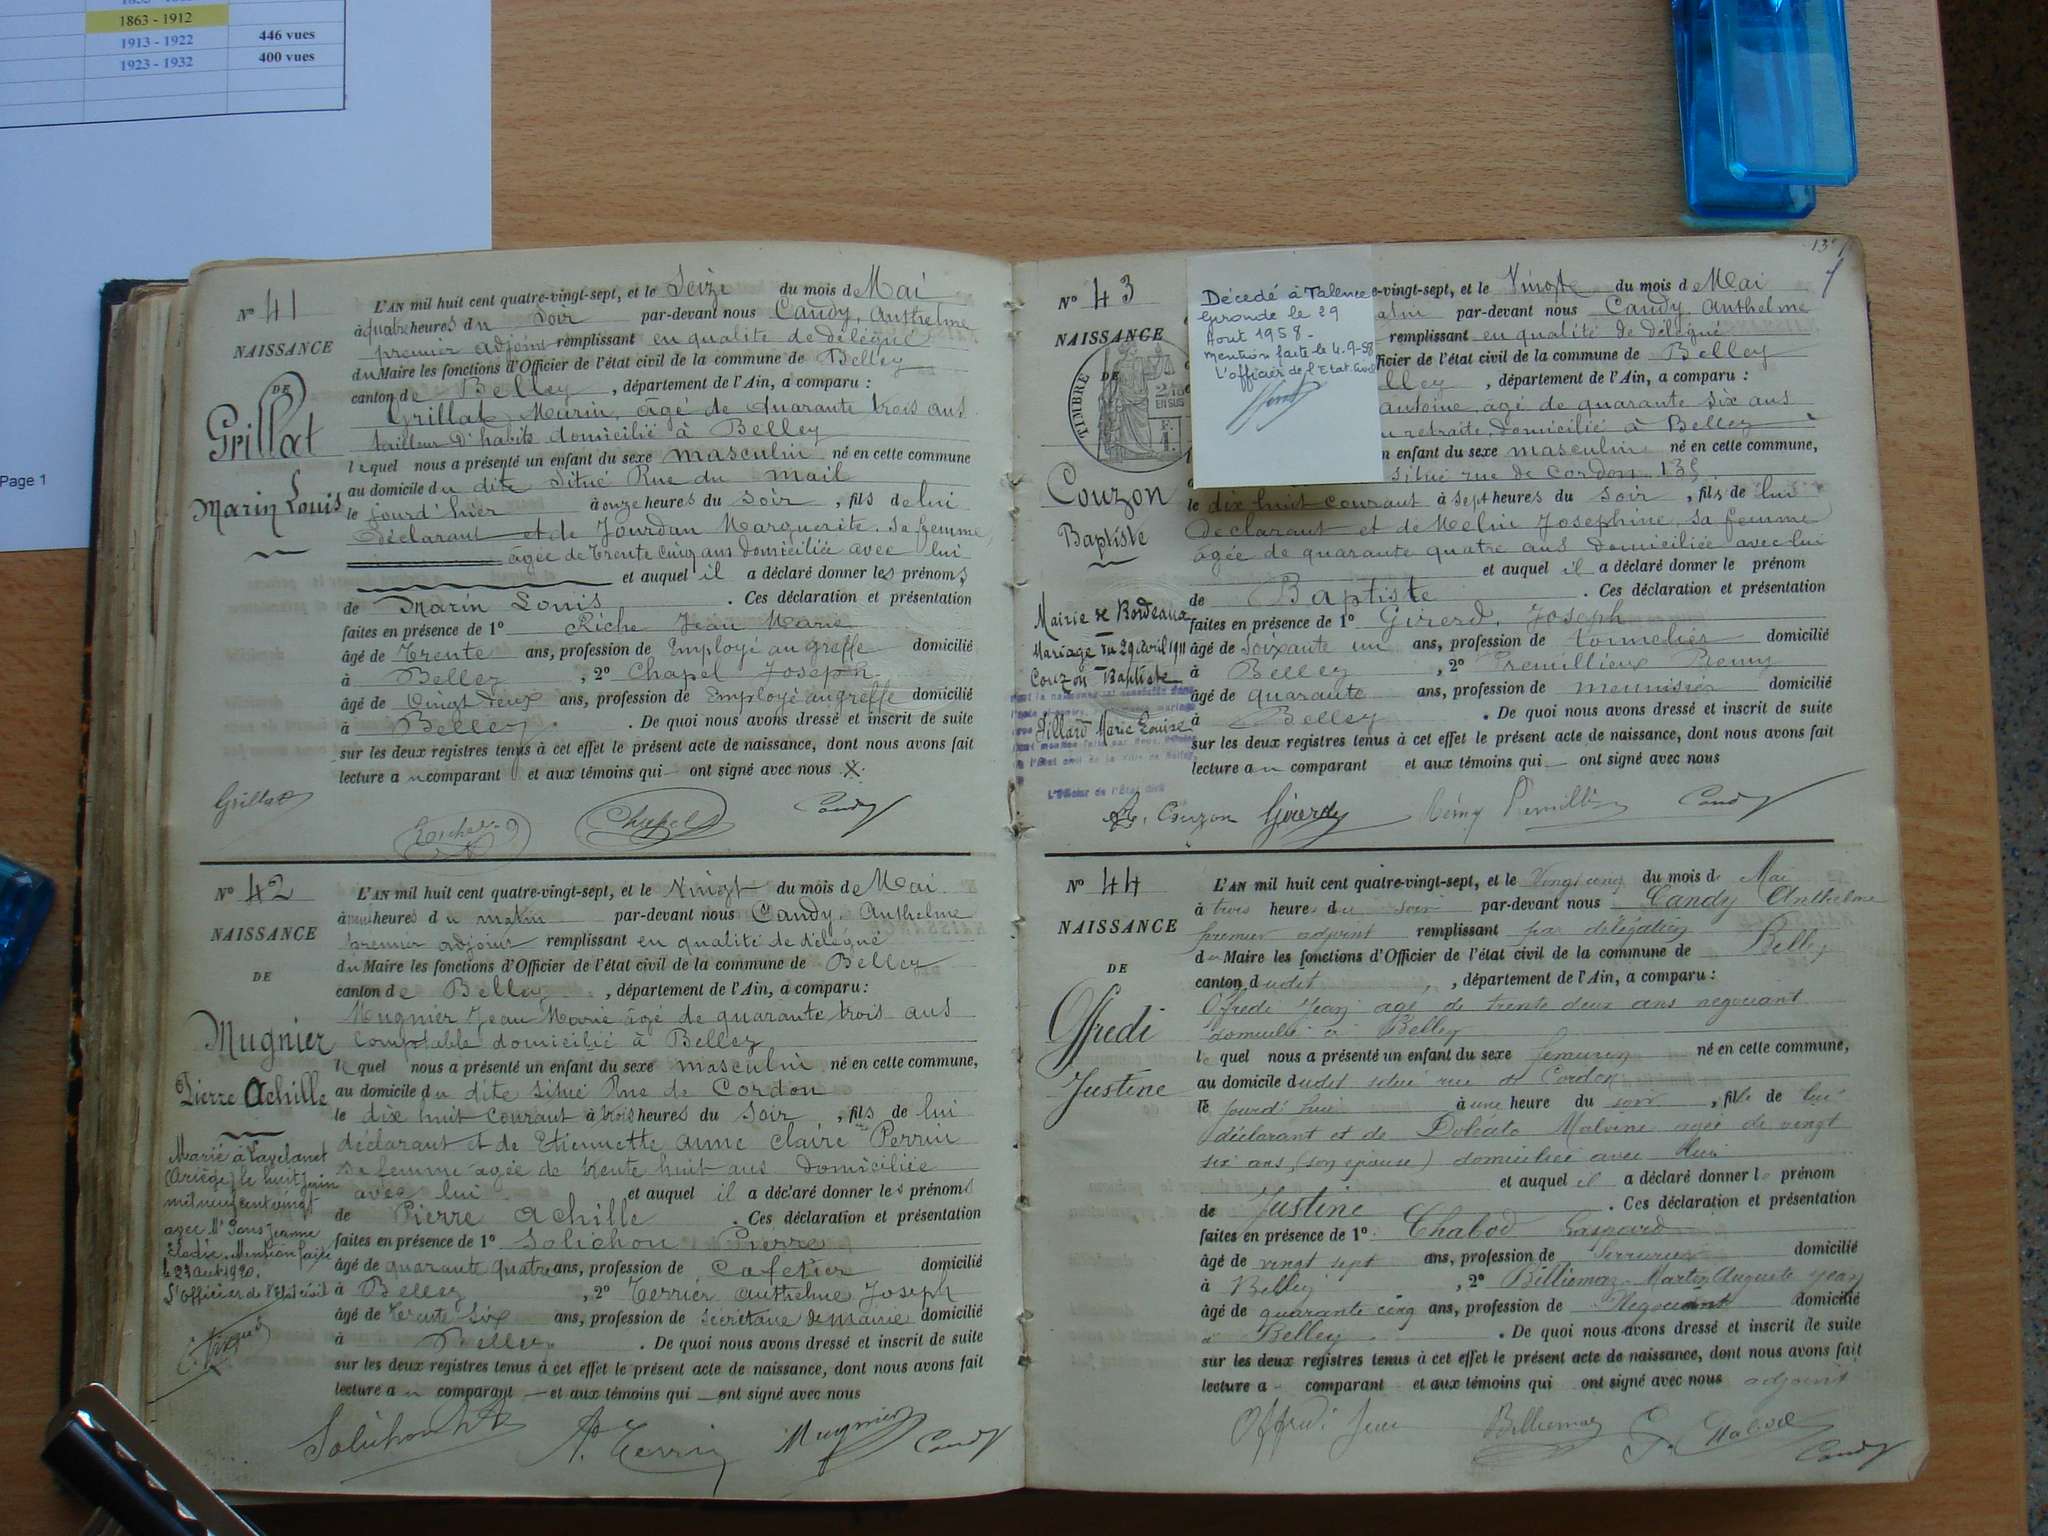 1863 - 1912
1913 - 1922 446 vues
1923 - 1932 400 vues
Page 1
N° 41
NAISSANCE
DE
Grillat
Marin Louis
L'AN mil huit cent quatre-vingt-sept, et le Seize du mois de Mai
à quatre heures du Soir par-devant nous Candy, Anthelme
premier adjoint remplissant en qualité de délégué
du Maire les fonctions d'Officier de l'état civil de la commune de Belley
canton de Belley, département de l'Ain, a comparu :
Grillat Marin, âgé de quarante trois ans
tailleur d'habits domicilié à Belley
lequel nous a présenté un enfant du sexe masculin né en cette commune
au domicile du dite situé Rue du mail
le jourd'hier à onze heures du soir, fils de lui
déclarant et de Jourdan Marguerite, sa femme,
âgée de trente cinq ans domiciliée avec lui
et auquel il a déclaré donner les prénoms
de Marin Louis. Ces déclaration et présentation
faites en présence de 1° Riche Jean Marie
âgé de trente ans, profession de Employé au greffe domicilié
à Belley, 2° Chapel Joseph
âgé de vingt deux ans, profession de Employé au greffe domicilié
à Belley. De quoi nous avons dressé et inscrit de suite
sur les deux registres tenus à cet effet le présent acte de naissance, dont nous avons fait
lecture au comparant et aux témoins qui ont signé avec nous
Grillat
Chapel
Candy
N° 42
NAISSANCE
DE
Mugnier
Pierre Achille
Marié à Lavelanet
(Ariège) le huit juin
mil neuf cent vingt
avec Mlle Pons Jeanne
Elodie. Mention faite
le 23 août 1920.
L'Officier de l'Etat civil
L'AN mil huit cent quatre-vingt-sept, et le Vingt du mois de Mai
heures du matin par-devant nous Candy, Anthelme
premier adjoint remplissant en qualité de délégué
du Maire les fonctions d'Officier de l'état civil de la commune de Belley
canton de Belley, département de l'Ain, a comparu :
Mugnier Jean Marie âgé de quarante trois ans
comptable domicilié à Belley
lequel nous a présenté un enfant du sexe masculin né en cette commune,
au domicile du dite situé Rue de Cordon
le dix huit courant à trois heures du soir, fils de lui
déclarant et de Etiennette anne claire Perrin
sa femme âgée de trente huit ans domiciliée
avec lui et auquel il a déclaré donner les prénoms
de Pierre achille. Ces déclaration et présentation
faites en présence de 1° Solichon Pierre
âgé de quarante quatre ans, profession de cafetier domicilié
à Belley, 2° Terrier Anthelme Joseph
âgé de trente six ans, profession de secrétaire de mairie domicilié
à Belley. De quoi nous avons dressé et inscrit de suite
sur les deux registres tenus à cet effet le présent acte de naissance, dont nous avons fait
lecture au comparant et aux témoins qui ont signé avec nous
Solichon
Mugnier
Candy
N° 43
NAISSANCE
DE
TIMBRE
Couzon
Baptiste
Mairie de Bordeaux
Mariage du 29 avril 1911
Couzon Baptiste
Jillard Marie Louise
L'Officier de l'État civil
Décédé à Talence
Gironde le 29
Aout 1958 -
Mention faite le 4-9-58
L'officier de l'Etat Civil
e-vingt-sept, et le Vingt du mois de Mai
par-devant nous Candy, Anthelme
remplissant en qualité de délégué
fficier de l'état civil de la commune de Belley
lley, département de l'Ain, a comparu :
antoine, âgé de quarante six ans
retraite, domicilié à Belley
n enfant du sexe masculin né en cette commune,
situé rue de Cordon 13
le dix huit courant à sept heures du soir, fils de lui
déclarant et de Melin Josephine, sa femme
âgée de quarante quatre ans domiciliée avec lui
et auquel il a déclaré donner le prénom
de Baptiste. Ces déclaration et présentation
faites en présence de 1° Girerd, Joseph
âgé de soixante un ans, profession de tonnelier domicilié
à Belley, 2° Premillieux Remy
âgé de quarante ans, profession de menuisier domicilié
à Belley. De quoi nous avons dressé et inscrit de suite
sur les deux registres tenus à cet effet le présent acte de naissance, dont nous avons fait
lecture au comparant et aux témoins qui ont signé avec nous
Couzon Girerd Rémy Premillieux Candy
N° 44
NAISSANCE
DE
Offredi
Justine
L'AN mil huit cent quatre-vingt-sept, et le Vingt cinq du mois de Mai
à trois heures du soir par-devant nous Candy Anthelme
premier adjoint remplissant par délégation
du Maire les fonctions d'Officier de l'état civil de la commune de Belley
canton dudit, département de l'Ain, a comparu :
Offredi Jean agé de trente deux ans négociant
domicilié à Belley
lequel nous a présenté un enfant du sexe féminin né en cette commune,
au domicile dudit situé rue de Cordon
le jourd'hui à une heure du soir, fille de lui
déclarant et de Dolcato Malvine agée de vingt
six ans, (son épouse) domiciliée avec lui
et auquel il a déclaré donner le prénom
de Justine. Ces déclaration et présentation
faites en présence de 1° Chabod Gaspard
âgé de vingt sept ans, profession de serrurier domicilié
à Belley, 2° Billiemaz Martin Auguste Jean
âgé de quarante cinq ans, profession de Négociant domicilié
à Belley. De quoi nous avons dressé et inscrit de suite
sur les deux registres tenus à cet effet le présent acte de naissance, dont nous avons fait
lecture a comparant et aux témoins qui ont signé avec nous adjoint
Offredi Jean Billiemaz G. Chabod
Candy